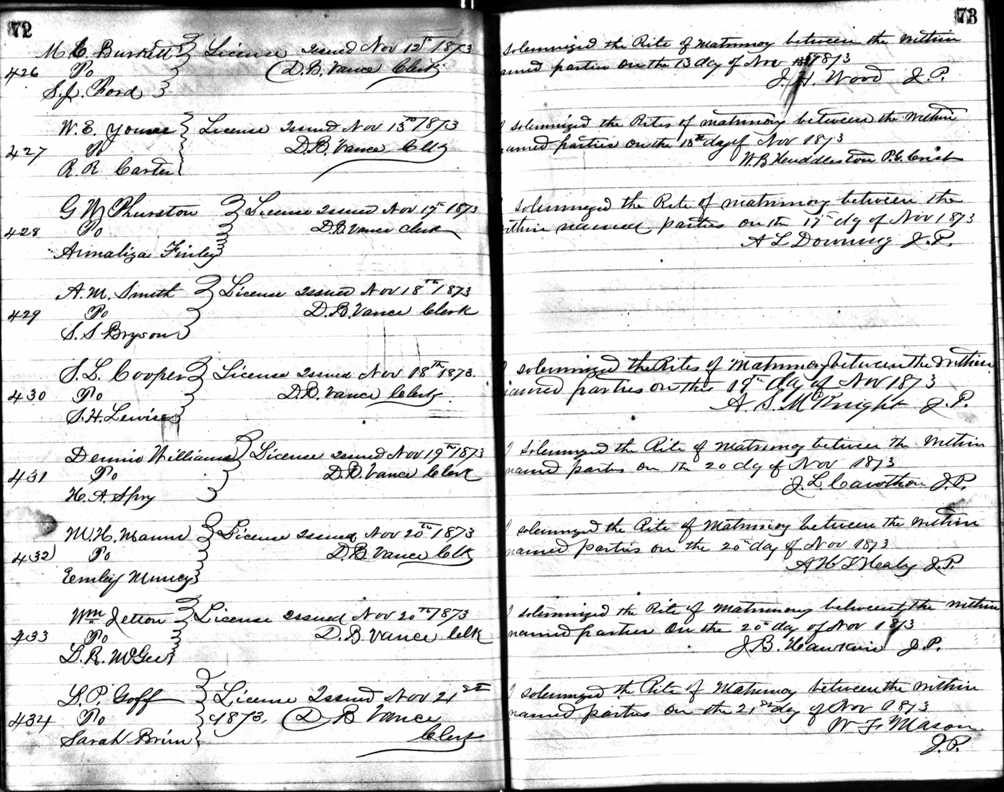 72
M C Burkett License Issued Nov 12th 1873
426 To D. B. Vance Clerk
S. J. Ford
W. E. License Issued Nov 13th 1873
427 To D. B. Vance Clk
R R Carter
G W Thurston License Issued Nov 17th 1873
428 To D. B Vance Clerk
Armaliza Finley
A. M. Smith License Issued Nov 18th 1873
429 To D. B. Vance Clerk
S. S Bryson
S. L. Cooper License Issued Nov 18th 1873
430 To D. B. Vance Clerk
S. H. Lewis
Dennis Williams License Issued Nov 19th 1873
431 To D. B. Vance Clerk
H. A. Spry
W. H. License Issued Nov 20th 1873
432 To D. B Vance Clk
Emley Muncy
Wm Jetton License Issued Nov 20th 1873
433 To D. B Vance Clk
L. R. McGee
L. P. Goff License Issued Nov 21st
434 To 1873. D B Vance
Sarah Brim Clerk
73
solemnized the Rite of Matrimoy between the within
amed parties on the 13 day of Nov 1873
J. H. Wood J. P.
I solemnized the Rites of matrimony between the within
named parties on the 13th day of Nov 1873
W B Huddleston P. C.
I solemnized the Rite of matrimony between the
within named parties on the 17th dy of Nov 1873
A L Downing J. P.
I solemnized the Rites of Matrimony between the within
named parties on the day of Nov 1873
A. S. McKnight J. P.
I solemnized the Rite of Matrimony between the within
named parties on the 20 dy of Nov 1873
J. L. Cawthon J. P.
I solemnized the Rite of Matrimony between the within
named parties on the 20th day of Nov 1873
J. P.
I solemnized the Rite of Matrimony between the within
named parties on the 20th day of Nov 1873
J. B. Hawkins J. P.
I solemnized the Rite of Matrimony between the within
named parties on the 21st day of Nov 1873
W F Mason
J. P.